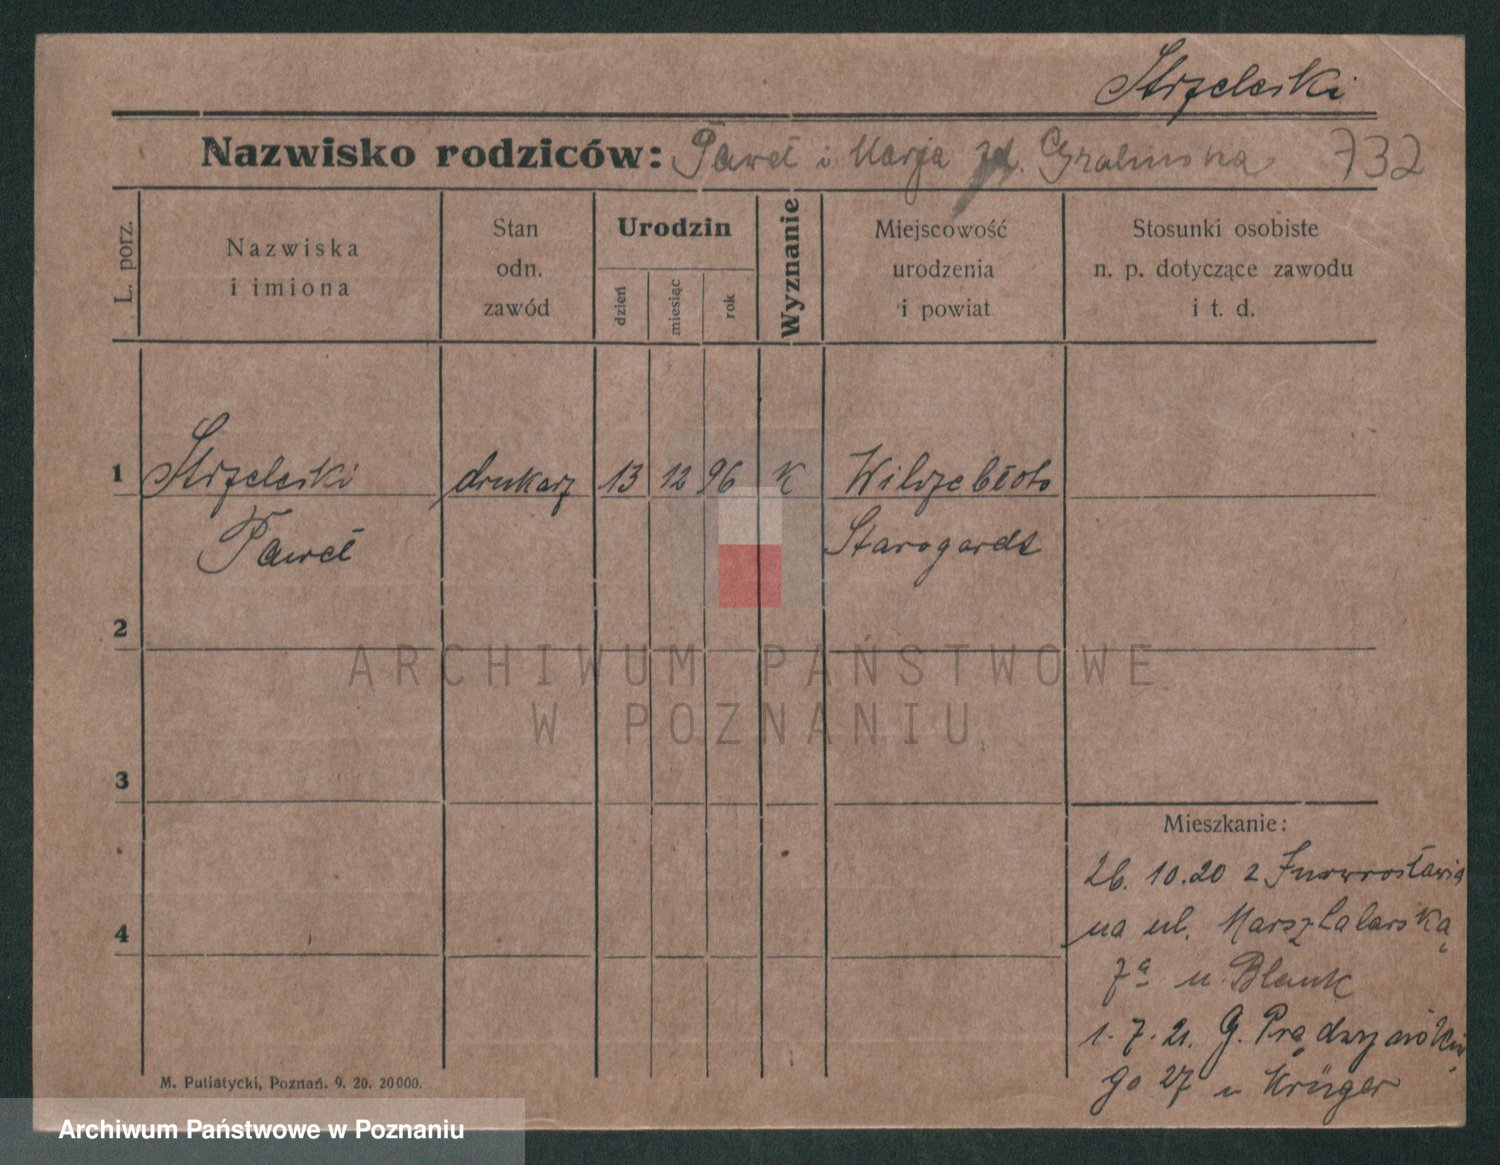 Strzelecki
Nazwisko rodziców: Paweł i Marja zd. Grabinska 732
L. porz.
Nazwiska
i imiona
Stan
odn.
zawód
Urodzin
dzień
miesiąc
rok
Wyznanie
Miejscowość
urodzenia
i powiat
Stosunki osobiste
n. p. dotyczące zawodu
i t. d.
1 Strzelecki drukarz 13 12 96 K Wilczebłoto
Paweł Starogardz
2
ARCHIWUM PAŃSTWOWE
W POZNANIU
3
Mieszkanie:
26. 10. 20 z Inowrocławia
4 na ul. Marszalarską
7a u. Blauk
1. 7. 21. G.
go 27 u Krüger
M. Putiatycki, Poznań. 9. 20. 20000.
Archiwum Państwowe w Poznaniu